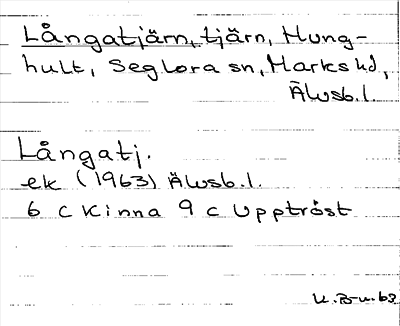 Långatjärn, tjärn, Hung-
hult, Seglora sn, Marks hd,
Älvsb. l.
Långatj.
ek (1963) Älvsb. l.
6 c Kinna 9 c Upptröst